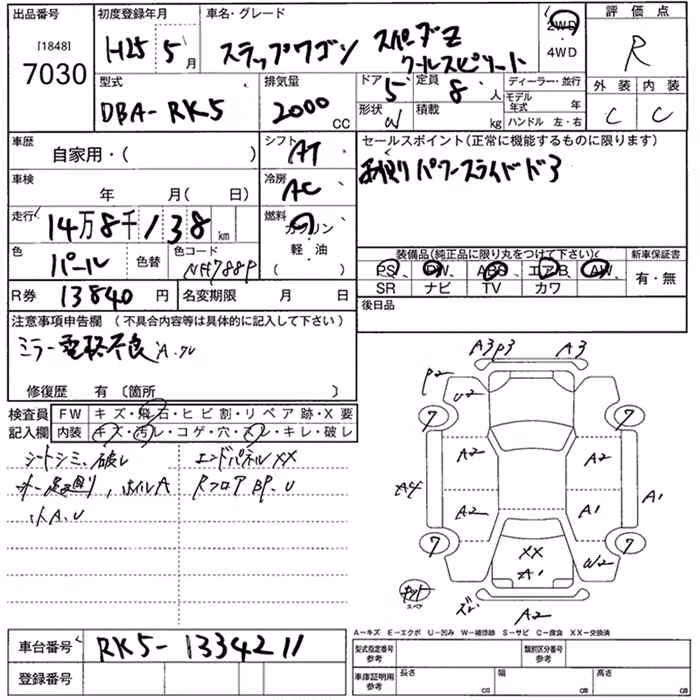 出品番号 初度登録年月 車名・グレード 評価点
[1848]
7030
H25 5月
ステップワゴン スパーダZ
クールスピリット
2WD
4WD
R
型式 排気量 ドア 定員 ディーラー・並行 外装 内装
DBA-RK5 2000 CC 5 8人 モデル年式 年 C C
形状 W 積載 kg ハンドル 左・右
車歴 シフト セールスポイント(正常に機能するものに限ります)
自家用・( ) AT 両側パワースライドドア
車検 冷房
年 月( 日) AC
走行 燃料
14万8千138km ガソリン
軽・油
( )
色 色替 色コード 装備品(純正品に限り丸をつけて下さい) 新車保証書
パール NH788P PS、PW、ABS、エアB、AW、 有・無
SR ナビ TV カワ
R券 13840円 名変期限 月 日 後日品
注意事項申告欄 (不具合内容等は具体的に記入して下さい)
ミラー電格不良
修復歴 有 〔箇所 〕
検査員記入欄 FW キズ・飛石・ヒビ割・リペア跡・X要
内装 キズ・汚レ・コゲ・穴・スレ・キレ・破レ
シートシミ、破レ エンドパネルXX
ホイルA RフロアBP.U
小A.U
A3 P3 A3
P2 U2
7 7
A2 A2
A4 A1
A2 A1
7 7
XX W2
A1
キット
スペア
A2
A−キズ E−エクボ U−凹み W−補修跡 S−サビ C−腐食 XX−交換済
車台番号 RK5-1334211
登録番号
型式指定番号 参考 類別区分番号 参考
車庫証明用 参考 長さ cm 幅 cm 高さ cm